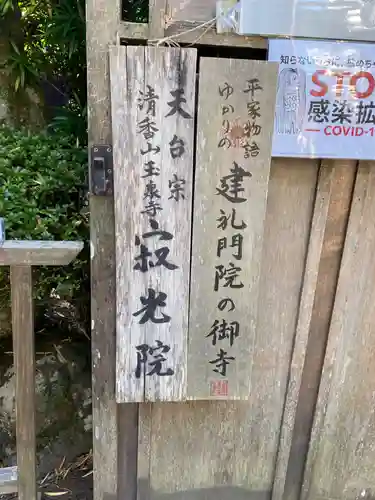 知らないうちに、拡めちゃ
STO
感染拡
— COVID-1
平家物語
ゆかりの
建礼門院の御寺
天台宗
清香山玉泉寺
寂光院